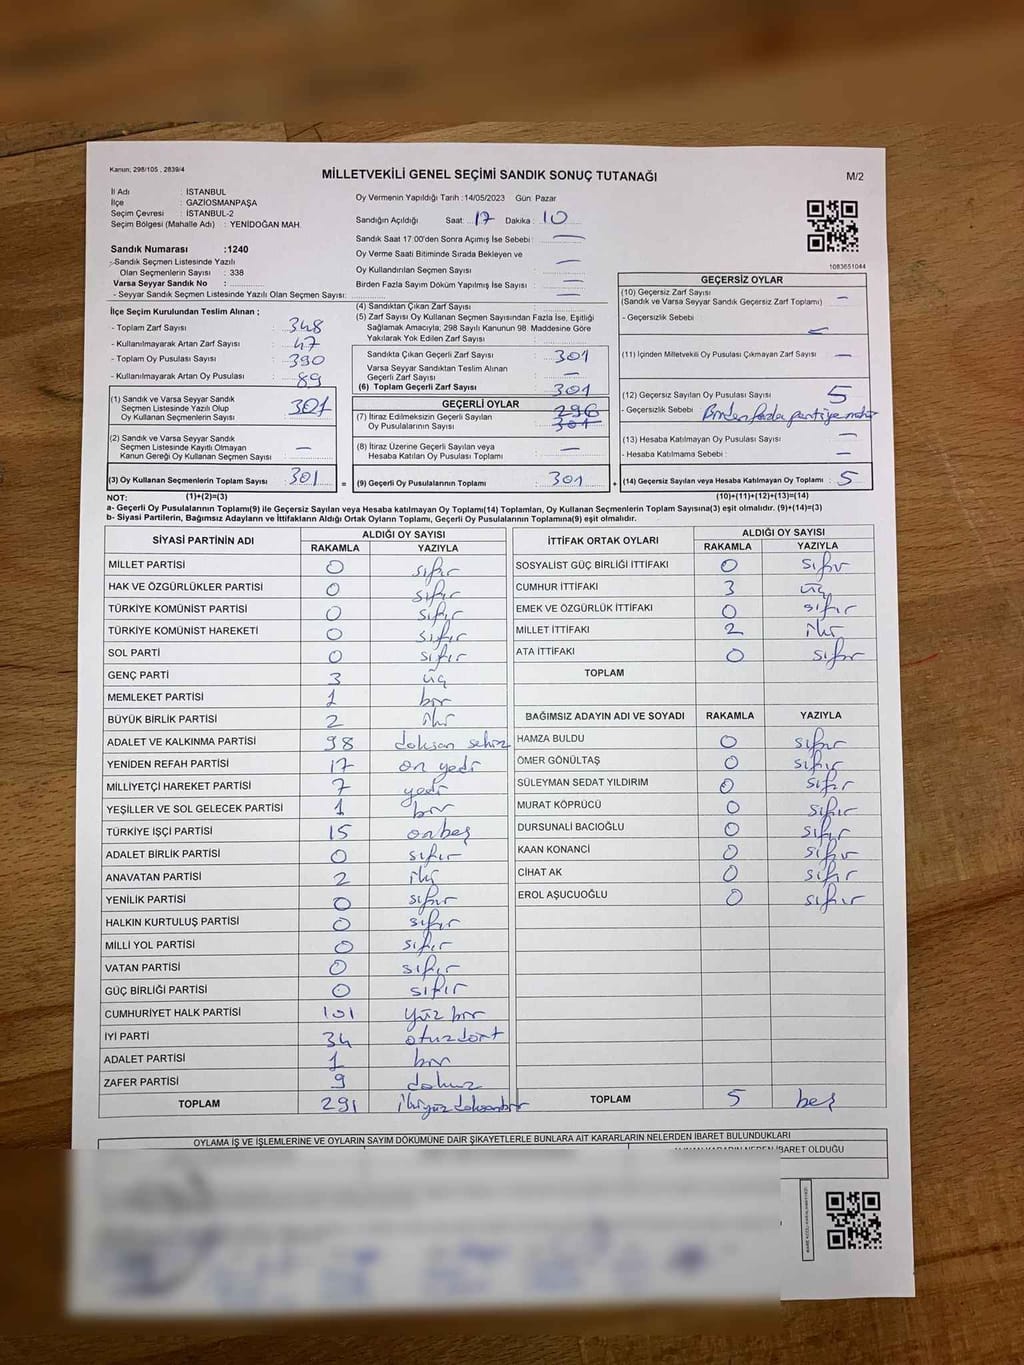 Kanun; 298/105 , 2839/4
MİLLETVEKİLİ GENEL SEÇİMİ SANDIK SONUÇ TUTANAĞI
M/2
İl Adı : İSTANBUL
İlçe : GAZİOSMANPAŞA
Seçim Çevresi : İSTANBUL-2
Seçim Bölgesi (Mahalle Adı) : YENİDOĞAN MAH.
Sandık Numarası :1240
Sandık Seçmen Listesinde Yazılı
Olan Seçmenlerin Sayısı : 338
Varsa Seyyar Sandık No :
- Seyyar Sandık Seçmen Listesinde Yazılı Olan Seçmen Sayısı:
Oy Vermenin Yapıldığı Tarih :14/05/2023 Gün: Pazar
Sandığın Açıldığı Saat : 17 Dakika : 10
Sandık Saat 17:00'den Sonra Açımış İse Sebebi : —
Oy Verme Saati Bitiminde Sırada Bekleyen ve
Oy Kullandırılan Seçmen Sayısı : —
Birden Fazla Sayım Döküm Yapılmış İse Sayısı : —
1083651044
İlçe Seçim Kurulundan Teslim Alınan ;
- Toplam Zarf Sayısı : 348
- Kullanılmayarak Artan Zarf Sayısı : 47
- Toplam Oy Pusulası Sayısı : 390
- Kullanılmayarak Artan Oy Pusulası : 89
(1) Sandık ve Varsa Seyyar Sandık
Seçmen Listesinde Yazılı Olup
Oy Kullanan Seçmenlerin Sayısı : 301
(2) Sandık ve Varsa Seyyar Sandık
Seçmen Listesinde Kayıtlı Olmayan
Kanun Gereği Oy Kullanan Seçmen Sayısı : —
(3) Oy Kullanan Seçmenlerin Toplam Sayısı : 301
(4) Sandıktan Çıkan Zarf Sayısı : —
(5) Zarf Sayısı Oy Kullanan Seçmen Sayısından Fazla İse, Eşitliği
Sağlamak Amacıyla; 298 Sayılı Kanunun 98. Maddesine Göre
Yakılarak Yok Edilen Zarf Sayısı :
Sandıkta Çıkan Geçerli Zarf Sayısı : 301
Varsa Seyyar Sandıktan Teslim Alınan
Geçerli Zarf Sayısı : —
(6) Toplam Geçerli Zarf Sayısı : 301
GEÇERLİ OYLAR
(7) İtiraz Edilmeksizin Geçerli Sayılan
Oy Pusulalarının Sayısı : 296 301
(8) İtiraz Üzerine Geçerli Sayılan veya
Hesaba Katılan Oy Pusulası Toplamı : —
= (9) Geçerli Oy Pusulalarının Toplamı : 301
GEÇERSİZ OYLAR
(10) Geçersiz Zarf Sayısı
(Sandık ve Varsa Seyyar Sandık Geçersiz Zarf Toplamı) : —
- Geçersizlik Sebebi :
(11) İçinden Milletvekili Oy Pusulası Çıkmayan Zarf Sayısı : —
(12) Geçersiz Sayılan Oy Pusulası Sayısı : 5
- Geçersizlik Sebebi : Birden fazla partiye mühür
(13) Hesaba Katılmayan Oy Pusulası Sayısı : —
- Hesaba Katılmama Sebebi : —
+ (14) Geçersiz Sayılan veya Hesaba Katılmayan Oy Toplamı : 5
NOT: (1)+(2)=(3) (10)+(11)+(12)+(13)=(14)
a- Geçerli Oy Pusulalarının Toplamı(9) ile Geçersiz Sayılan veya Hesaba katılmayan Oy Toplamı(14) Toplamları, Oy Kullanan Seçmenlerin Toplam Sayısına(3) eşit olmalıdır. (9)+(14)=(3)
b- Siyasi Partilerin, Bağımsız Adayların ve İttifakların Aldığı Ortak Oyların Toplamı, Geçerli Oy Pusulalarının Toplamına(9) eşit olmalıdır.
SİYASİ PARTİNİN ADI ALDIĞI OY SAYISI
RAKAMLA YAZIYLA
MİLLET PARTİSİ 0 sıfır
HAK VE ÖZGÜRLÜKLER PARTİSİ 0 sıfır
TÜRKİYE KOMÜNİST PARTİSİ 0 sıfır
TÜRKİYE KOMÜNİST HAREKETİ 0 sıfır
SOL PARTİ 0 sıfır
GENÇ PARTİ 3 üç
MEMLEKET PARTİSİ 1 bir
BÜYÜK BİRLİK PARTİSİ 2 iki
ADALET VE KALKINMA PARTİSİ 98 doksan sekiz
YENİDEN REFAH PARTİSİ 17 on yedi
MİLLİYETÇİ HAREKET PARTİSİ 7 yedi
YEŞİLLER VE SOL GELECEK PARTİSİ 1 bir
TÜRKİYE İŞÇİ PARTİSİ 15 onbeş
ADALET BİRLİK PARTİSİ 0 sıfır
ANAVATAN PARTİSİ 2 iki
YENİLİK PARTİSİ 0 sıfır
HALKIN KURTULUŞ PARTİSİ 0 sıfır
MİLLİ YOL PARTİSİ 0 sıfır
VATAN PARTİSİ 0 sıfır
GÜÇ BİRLİĞİ PARTİSİ 0 sıfır
CUMHURİYET HALK PARTİSİ 101 yüz bir
İYİ PARTİ 34 otuz dört
ADALET PARTİSİ 1 bir
ZAFER PARTİSİ 9 dokuz
TOPLAM 291 ikiyüz doksanbir
İTTİFAK ORTAK OYLARI ALDIĞI OY SAYISI
RAKAMLA YAZIYLA
SOSYALİST GÜÇ BİRLİĞİ İTTİFAKI 0 sıfır
CUMHUR İTTİFAKI 3 üç
EMEK VE ÖZGÜRLÜK İTTİFAKI 0 sıfır
MİLLET İTTİFAKI 2 iki
ATA İTTİFAKI 0 sıfır
TOPLAM
BAĞIMSIZ ADAYIN ADI VE SOYADI RAKAMLA YAZIYLA
HAMZA BULDU 0 sıfır
ÖMER GÖNÜLTAŞ 0 sıfır
SÜLEYMAN SEDAT YILDIRIM 0 sıfır
MURAT KÖPRÜCÜ 0 sıfır
DURSUNALİ BACIOĞLU 0 sıfır
KAAN KONANCİ 0 sıfır
CİHAT AK 0 sıfır
EROL AŞUCUOĞLU 0 sıfır
TOPLAM 5 beş
OYLAMA İŞ VE İŞLEMLERİNE VE OYLARIN SAYIM DÖKÜMÜNE DAİR ŞİKAYETLERLE BUNLARA AİT KARARLARIN NELERDEN İBARET BULUNDUKLARI
İBARET OLDUĞU